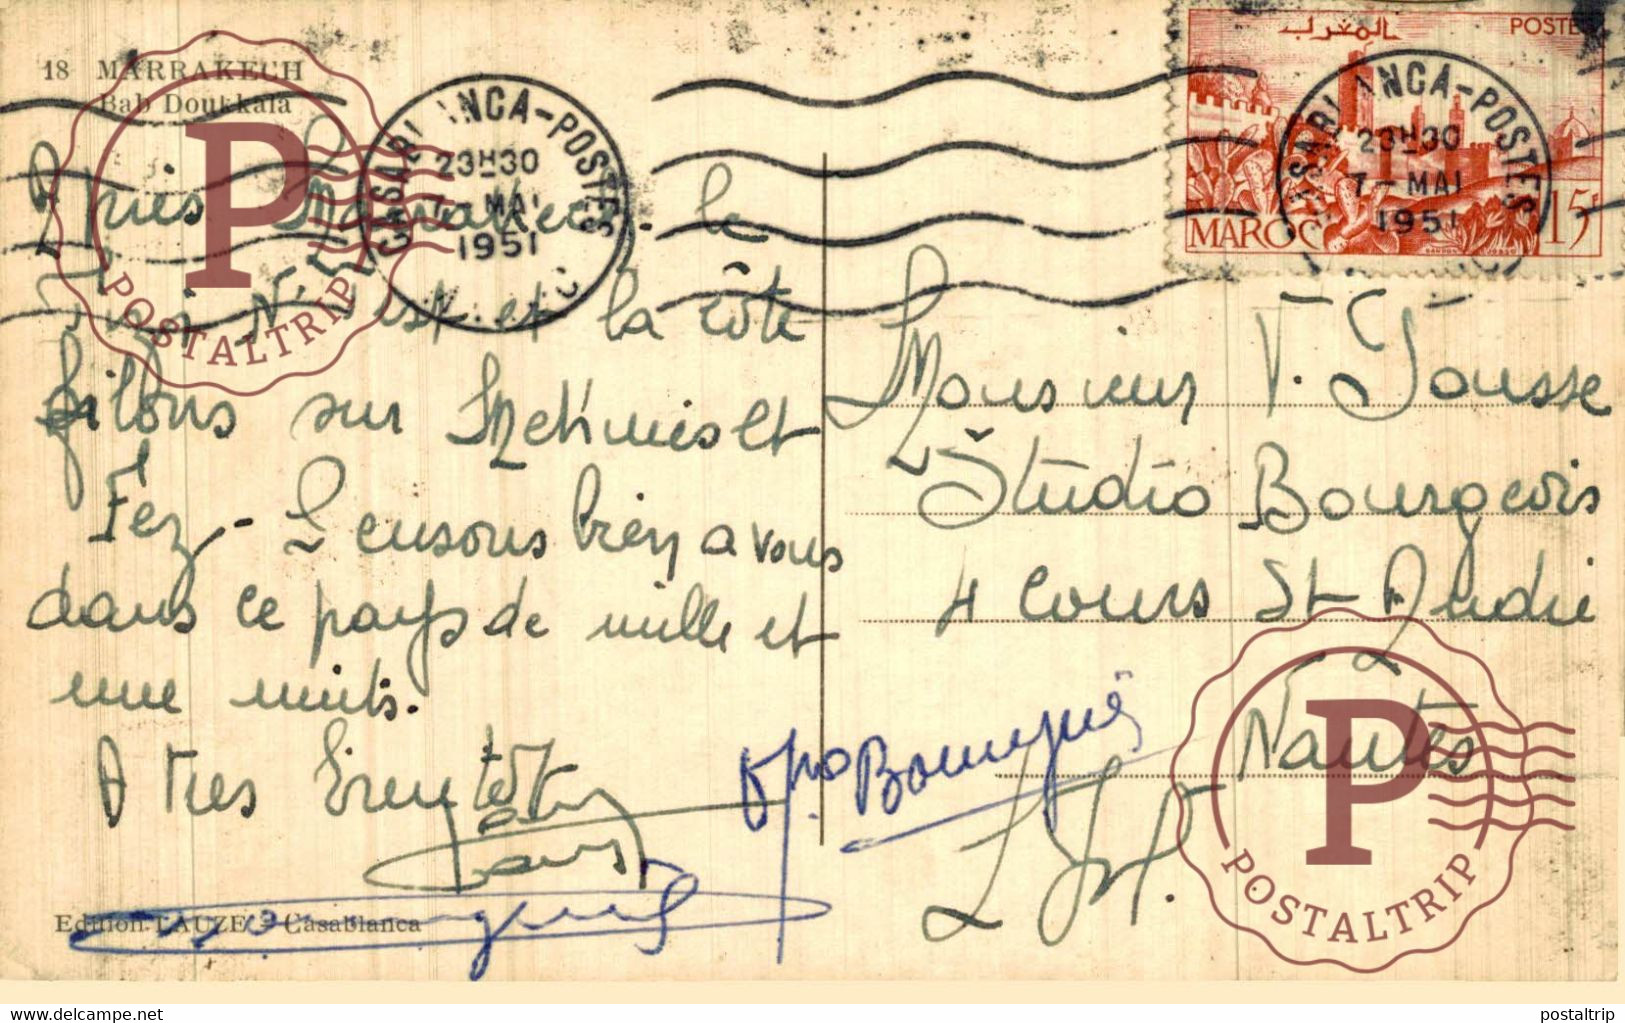 18 MARRAKECH
Bab Doukkala
CASABLANCA-POSTES
23H30
7-MAI
1951
المغرب
POSTES
MAROC 15F
CASABLANCA-POSTES
23H30
7-MAI
1951
Après Marrakech. le
et la côte
filons sur Meknès et
Fez - Pensons bien a vous
dans ce pays de mille et
une nuits.
A tres bientôt
Monsieur V. Tousse
Studio Bourgeois
4 Cours St André
Nantes
L Inf.
Edition LAUZE - Casablanca
P
POSTALTRIP
P
POSTALTRIP
www.delcampe.net
postaltrip